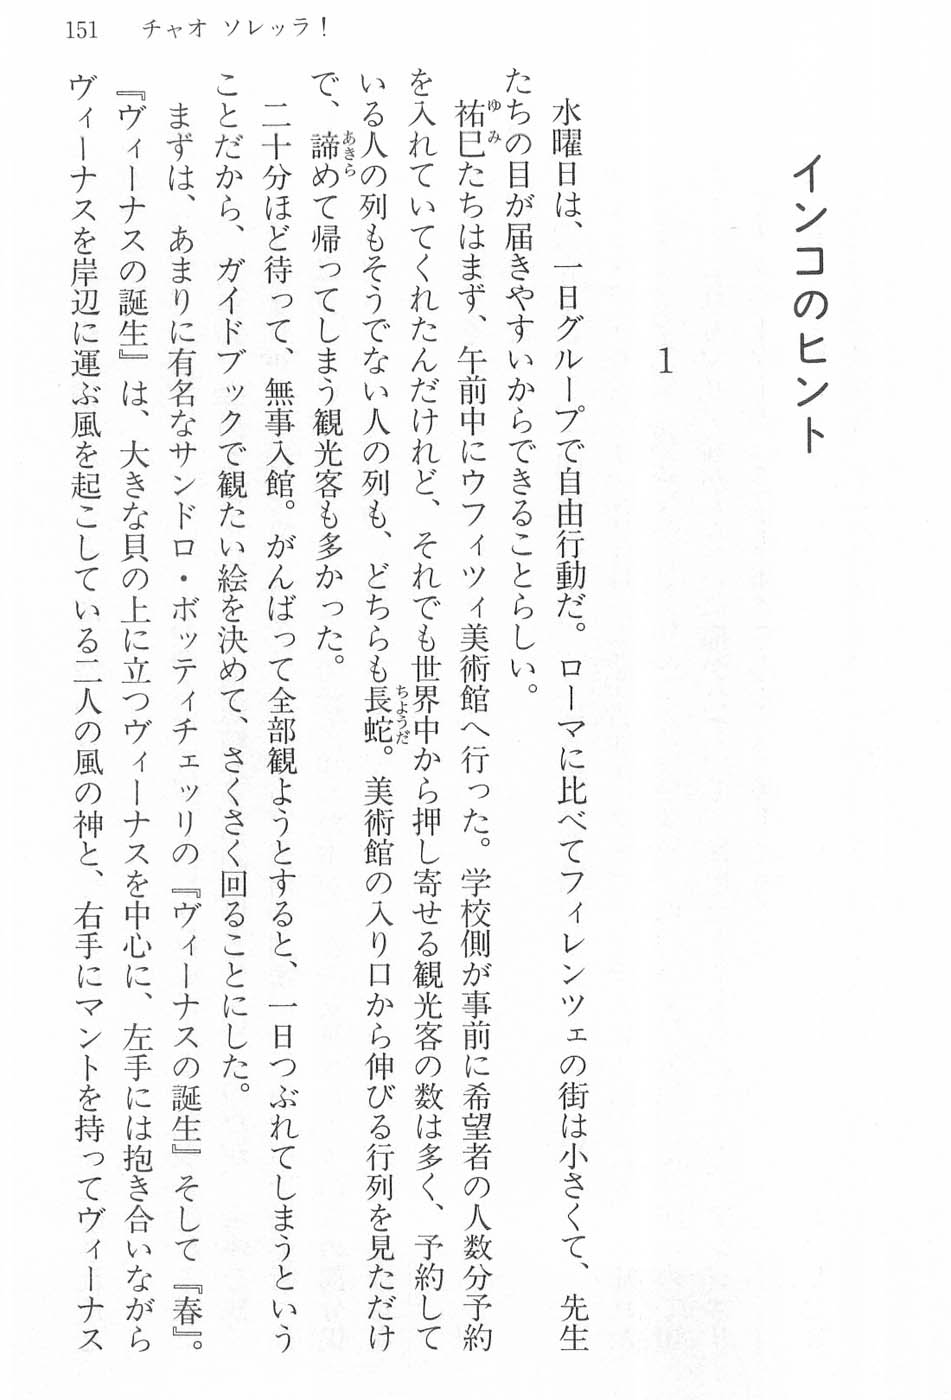 151 チャオ ソレッラ!
インコのヒント
1
水曜日は、一日グループで自由行動だ。ローマに比べてフィレンツェの街は小さくて、先生
たちの目が届きやすいからできることらしい。
祐巳たちはまず、午前中にウフィツィ美術館へ行った。学校側が事前に希望者の人数分予約
を入れていてくれたんだけれど、それでも世界中から押し寄せる観光客の数は多く、予約して
いる人の列もそうでない人の列も、どちらも長蛇。美術館の入り口から伸びる行列を見ただけ
で、諦めて帰ってしまう観光客も多かった。
二十分ほど待って、無事入館。がんばって全部観ようとすると、一日つぶれてしまうという
ことだから、ガイドブックで観たい絵を決めて、さくさく回ることにした。
まずは、あまりに有名なサンドロ・ボッティチェッリの『ヴィーナスの誕生』そして『春』。
『ヴィーナスの誕生』は、大きな貝の上に立つヴィーナスを中心に、左手には抱き合いながら
ヴィーナスを岸辺に運ぶ風を起こしている二人の風の神と、右手にマントを持ってヴィーナス